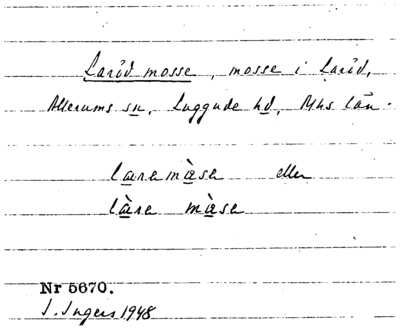 Laröd mosse, mosse i Laröd,
Allerums sn, Luggude hd, Mhs län.
laremàse eller
làre màse
Nr 5670.
I. Ingers 1948